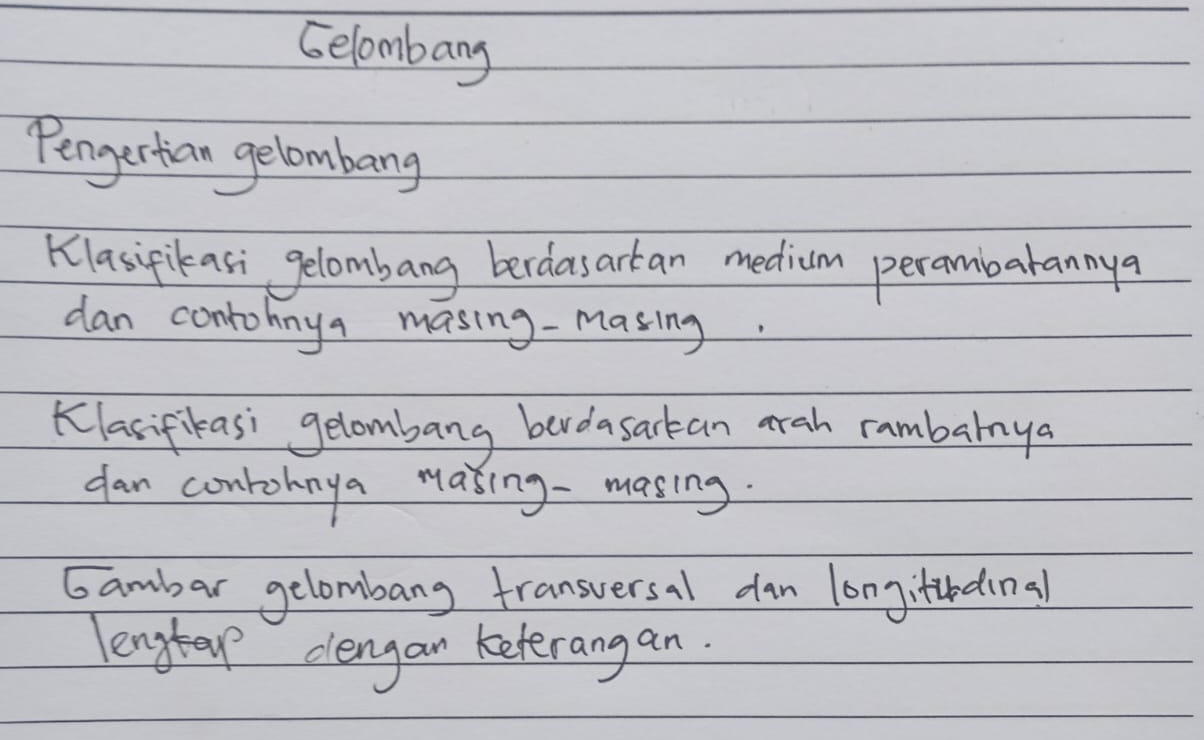 Gelombang
Pengertian gelombang
Klasifikasi gelombang berdasarkan medium perambatannya
dan contohnya masing-masing.
Klasifikasi gelombang berdasarkan arah rambatnya
dan contohnya masing-masing.
Gambar gelombang transversal dan longitudinal
lengkap dengan keterangan.